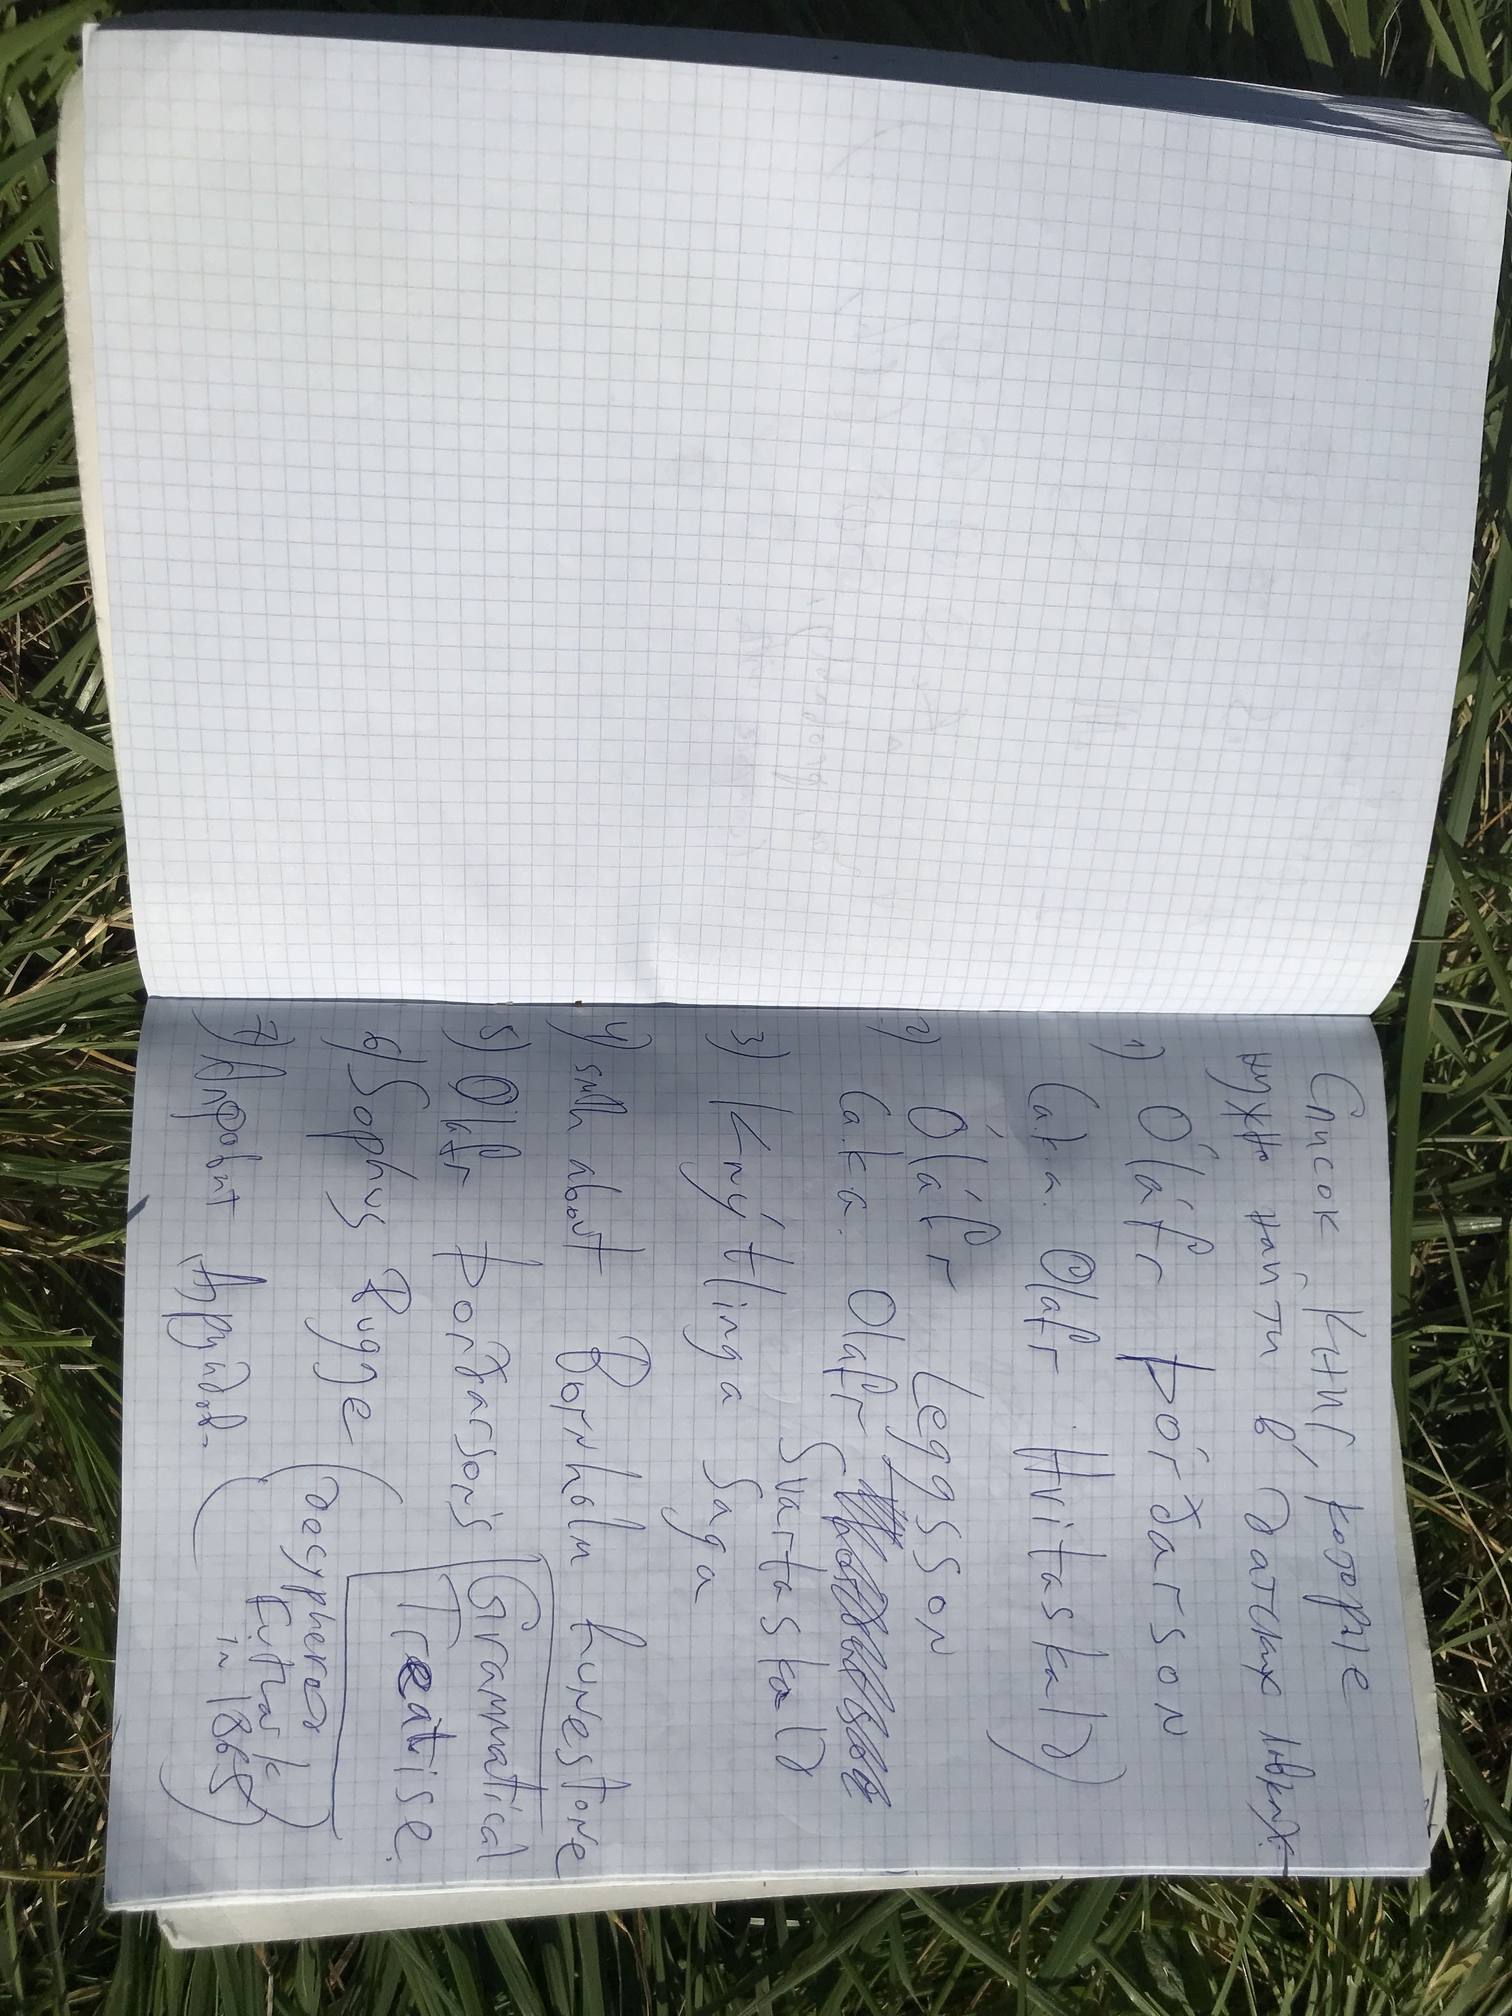 Список книг, которые
нужно найти в датских
1) Óláfr Þórðarson
(a.k.a. Olafr Hvitaskald)
2) Óláfr Leggsson
(a.k.a. Olafr
Svartaskald)
3) Knýtlinga Saga
4) smth about Bornholm Runestone
5) Olafr Þorðarson's Grammatical
Treatise.
6) Sophus Bugge (decyphered
Futhark
in 1865)
7) Алфавит